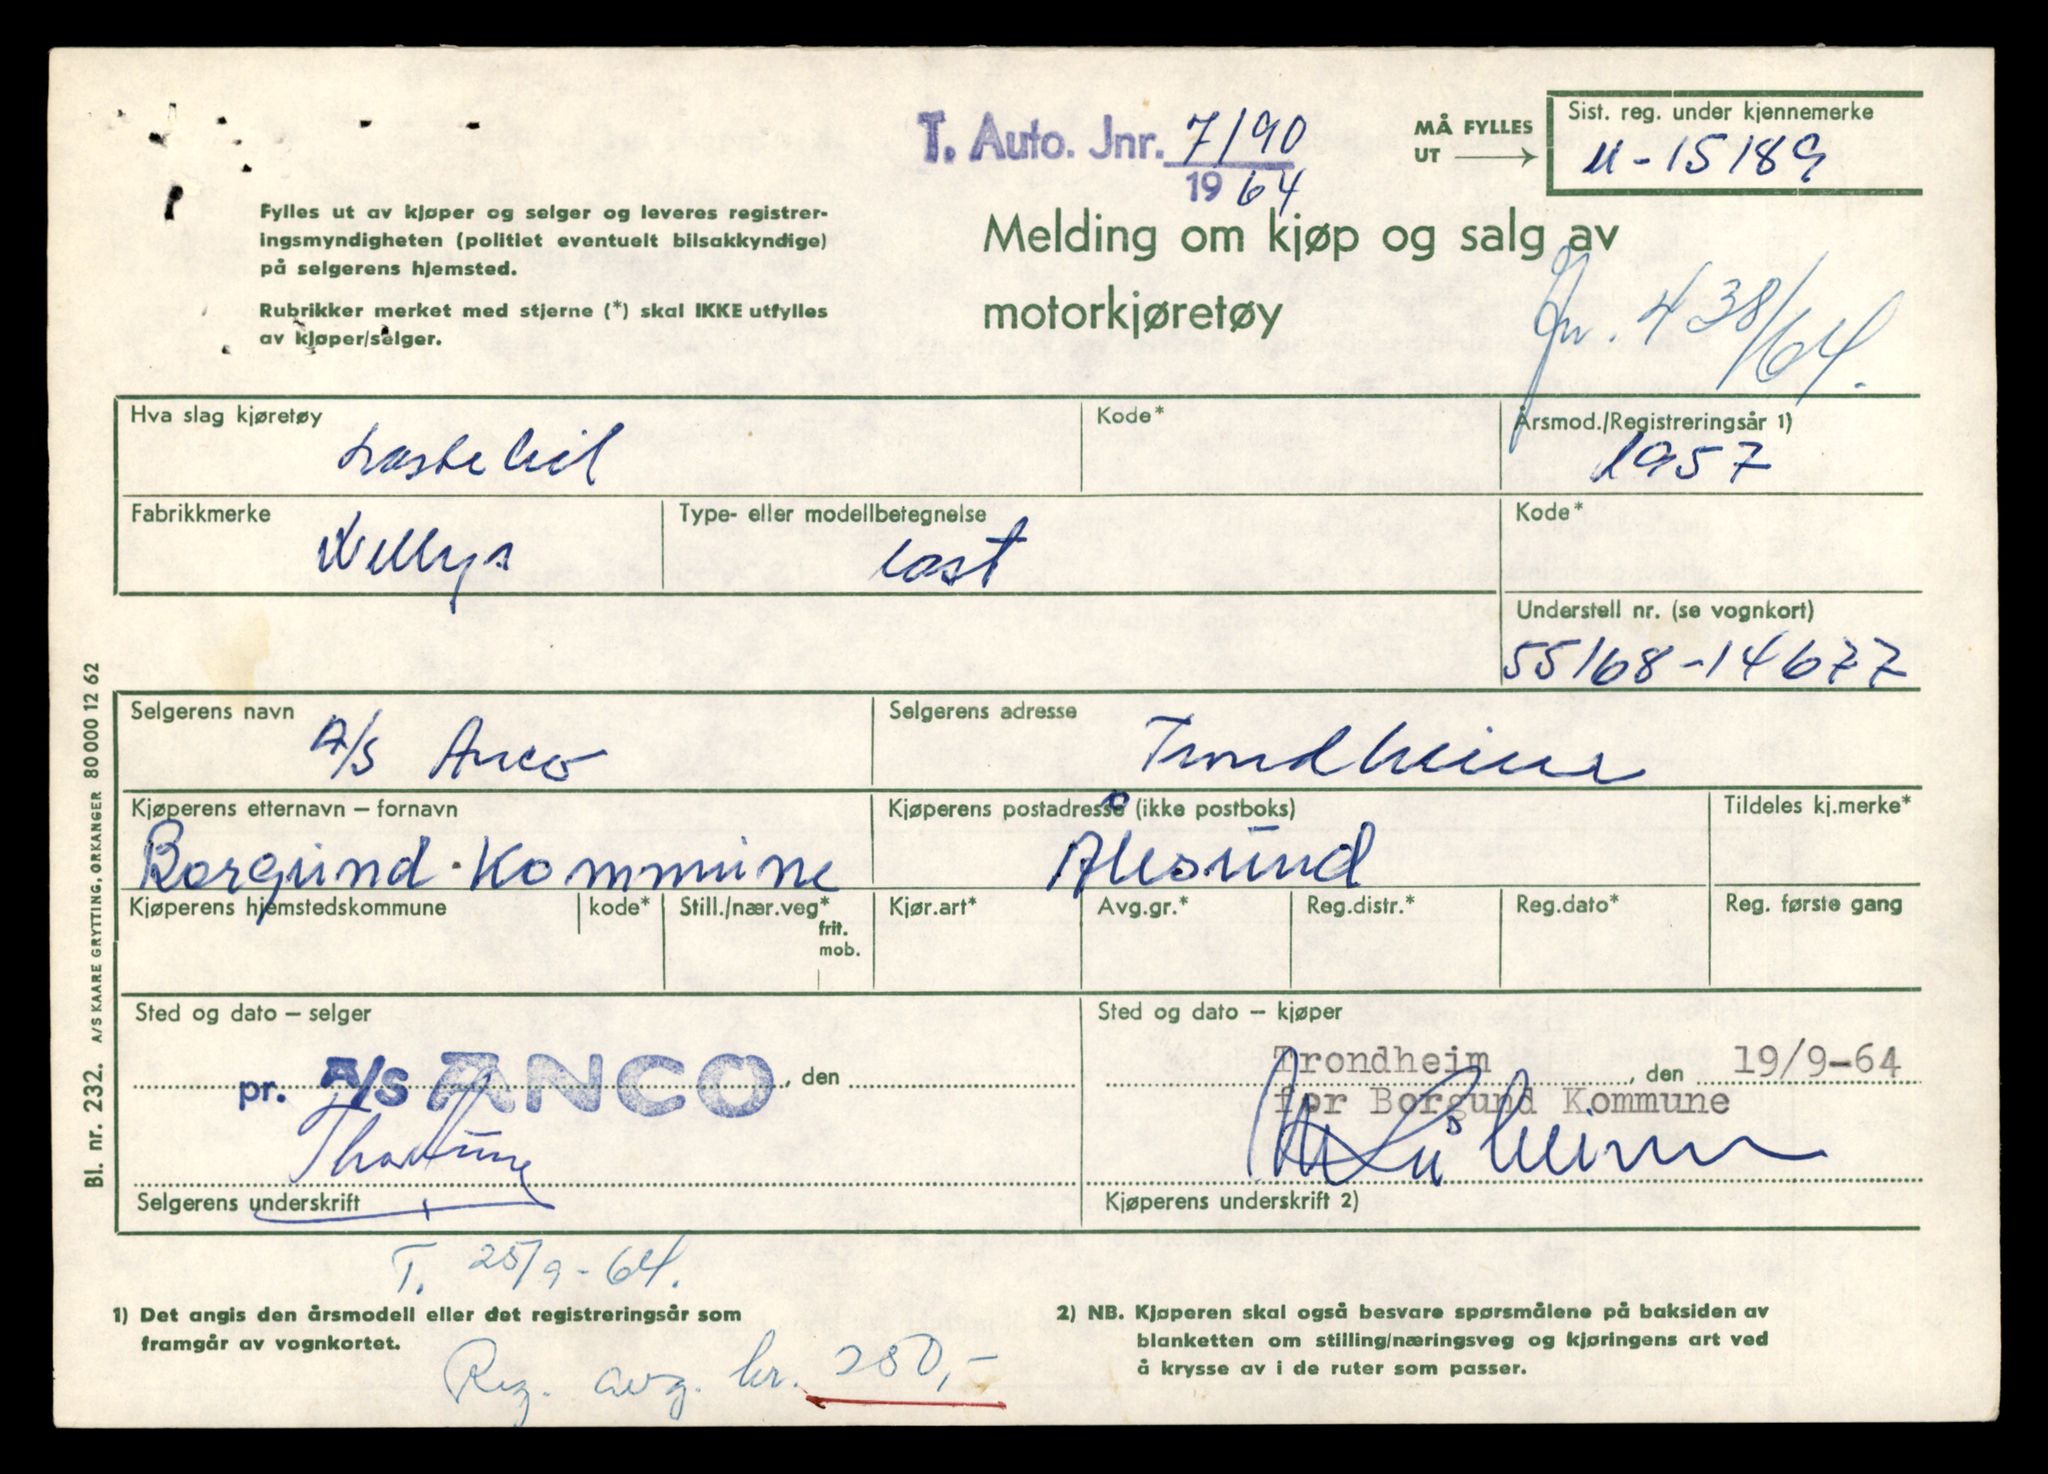 T. Auto. Jnr. 7190
1964
MÅ FYLLES
UT
Sist. reg. under kjennemerke
U-15189
Fylles ut av kjøper og selger og leveres registrer-
ingsmyndigheten (politiet eventuelt bilsakkyndige)
på selgerens hjemsted.
Rubrikker merket med stjerne (*) skal IKKE utfylles
av kjøper/selger.
Melding om kjøp og salg av
motorkjøretøy
Jnr. 438/64.
Hva slag kjøretøy
Lastebil
Kode*
Årsmod./Registreringsår 1)
1957
Fabrikkmerke
Willys
Type- eller modellbetegnelse
Last
Kode*
Understell nr. (se vognkort)
55168-14677
Selgerens navn
A/S Anco
Selgerens adresse
Trondheim
Kjøperens etternavn – fornavn
Borgund Kommune
Kjøperens postadresse (ikke postboks)
Ålesund
Tildeles kj.merke*
Kjøperens hjemstedskommune
kode*
Still./nær.veg*
frit.
mob.
Kjør.art*
Avg.gr.*
Reg.distr.*
Reg.dato*
Reg. første gang
Sted og dato – selger
pr. A/S ANCO , den
Selgerens underskrift
Sted og dato – kjøper
Trondheim , den 19/9-64
for Borgund Kommune
Kjøperens underskrift 2)
T. 25/9-64.
1) Det angis den årsmodell eller det registreringsår som
framgår av vognkortet.
Reg. avg. kr. 250,-
2) NB. Kjøperen skal også besvare spørsmålene på baksiden av
blanketten om stilling/næringsveg og kjøringens art ved
å krysse av i de ruter som passer.
Bl. nr. 232. A/S KAARE GRYTTING, ORKANGER 80000 12 62